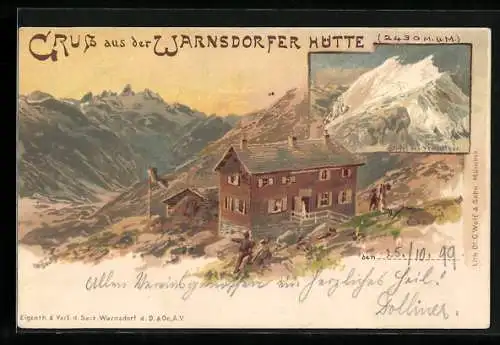 Gruß aus der Warnsdorfer Hütte (2430 M.ü.M.)
den 25./10. 99
Allen Vereinsgenossen ein herzliches Heil!
Zolliner.
Eigenth. & Verl. d. Sect. Warnsdorf d. D. & Oe. A.V.
Lith. Dr. C. Wolf & Sohn, München